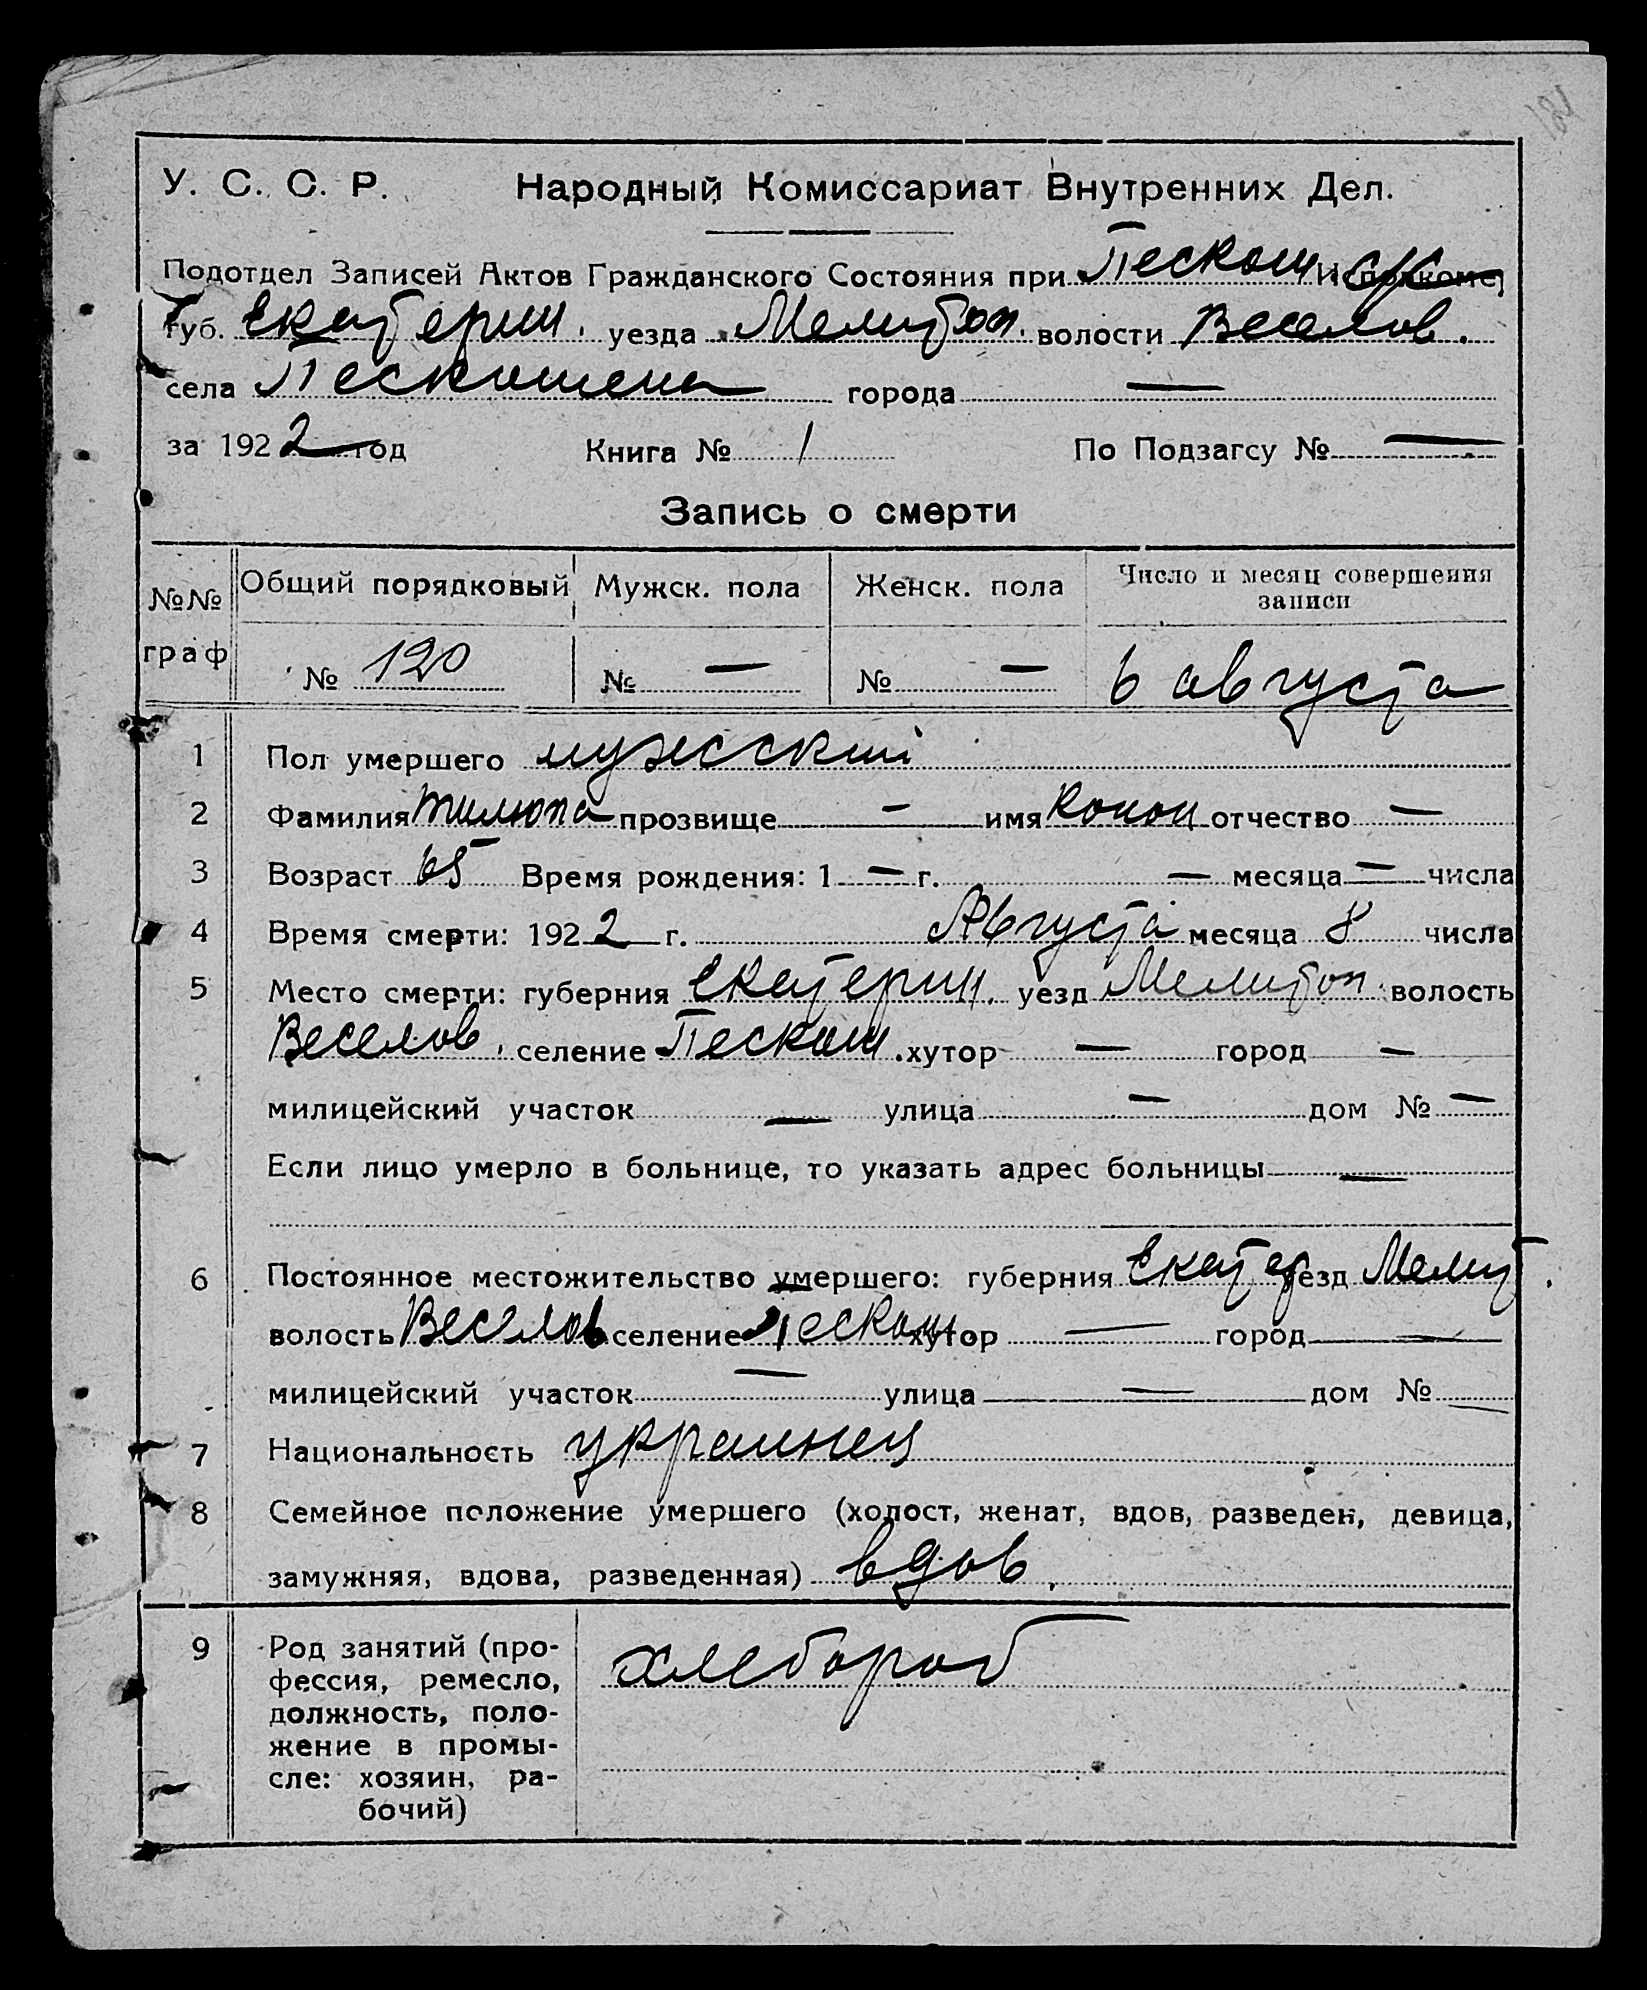 121
У. С. С. Р. Народный Комиссариат Внутренних Дел.
Подотдел Записей Актов Гражданского Состояния при Пескош Исполкоме
губ. Екатерин. уезда Мелитоп. волости Веселов.
села Пескошена города —
за 1922 год Книга № 1 По Подзагсу № —
Запись о смерти
№№ граф Общий порядковый Мужск. пола Женск. пола Число и месяц совершения записи
№ 120 № — № — 6 августа
1 Пол умершего мужсский
2 Фамилия Тилюпа прозвище — имя Конон отчество —
3 Возраст 65 Время рождения: 1 — г. — месяца — числа
4 Время смерти: 1922 г. Августа месяца 8 числа
5 Место смерти: губерния Екатерин. уезд Мелитоп. волость
Веселов. селение Пескош. хутор — город —
милицейский участок — улица — дом № —
Если лицо умерло в больнице, то указать адрес больницы —
6 Постоянное местожительство умершего: губерния Екатер уезд Мелит.
волость Веселов селение Пескош. хутор — город —
милицейский участок — улица — дом № —
7 Национальность украинец
8 Семейное положение умершего (холост, женат, вдов, разведен, девица,
замужняя, вдова, разведенная) вдов.
9 Род занятий (про-
фессия, ремесло,
должность, поло-
жение в промы-
сле: хозяин, ра-
бочий)
хлебороб